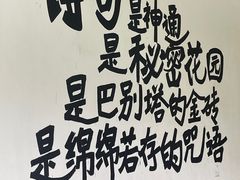 诗句是神通
是秘密花园
是巴别塔的金砖
是绵绵若存的咒语